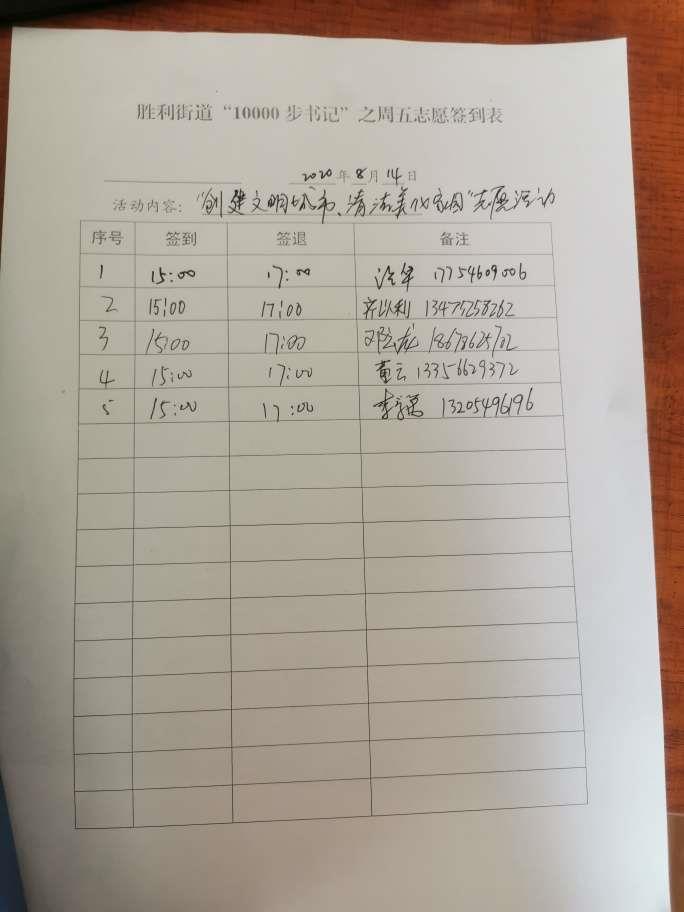 胜利街道“10000 步书记”之周五志愿签到表
2020年8月14日
活动内容：“创建文明城市、清洁美化家园”志愿活动
序号 签到 签退 备注
1 15:00 17:00 17754609006
2 15:00 17:00 齐以利 13475258262
3 15:00 17:00
4 15:00 17:00 董云 13356629372
5 15:00 17:00 13205496196